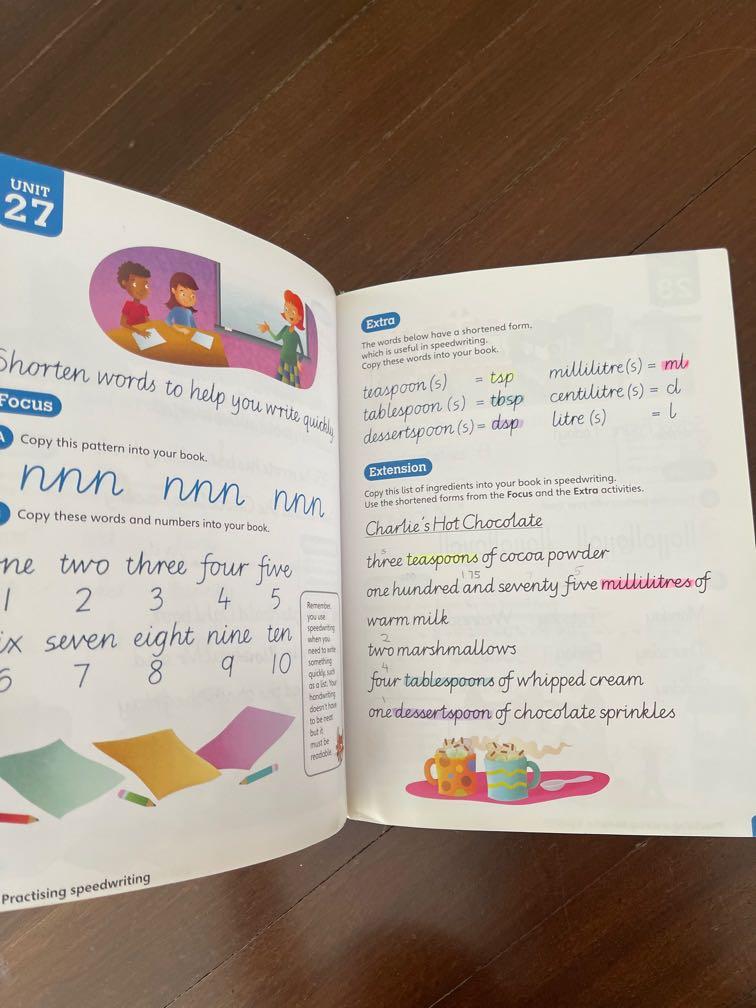 UNIT
27
Shorten words to help you write quickly
Focus
A Copy this pattern into your book.
nnn nnn nnn
Copy these words and numbers into your book.
one two three four five
1 2 3 4 5
six seven eight nine ten
6 7 8 9 10
Remember,
you use
speedwriting
when you
need to write
something
quickly, such
as a list. Your
handwriting
doesn't have
to be neat
but it
must be
readable.
Practising speedwriting
Extra
The words below have a shortened form,
which is useful in speedwriting.
Copy these words into your book.
teaspoon(s) = tsp millilitre(s) = ml
tablespoon (s) = tbsp centilitre(s) = cl
dessertspoon(s)= dsp litre (s) = l
Extension
Copy this list of ingredients into your book in speedwriting.
Use the shortened forms from the Focus and the Extra activities.
Charlie's Hot Chocolate
three teaspoons of cocoa powder
175
one hundred and seventy five millilitres of
warm milk
2
two marshmallows
4
four tablespoons of whipped cream
1
one dessertspoon of chocolate sprinkles